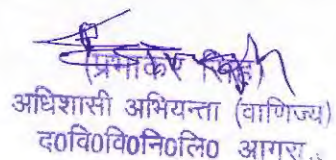 (प्रभाकर सिंह)
अधिशासी अभियन्ता (वाणिज्य)
द०वि०वि०नि०लि० आगरा..